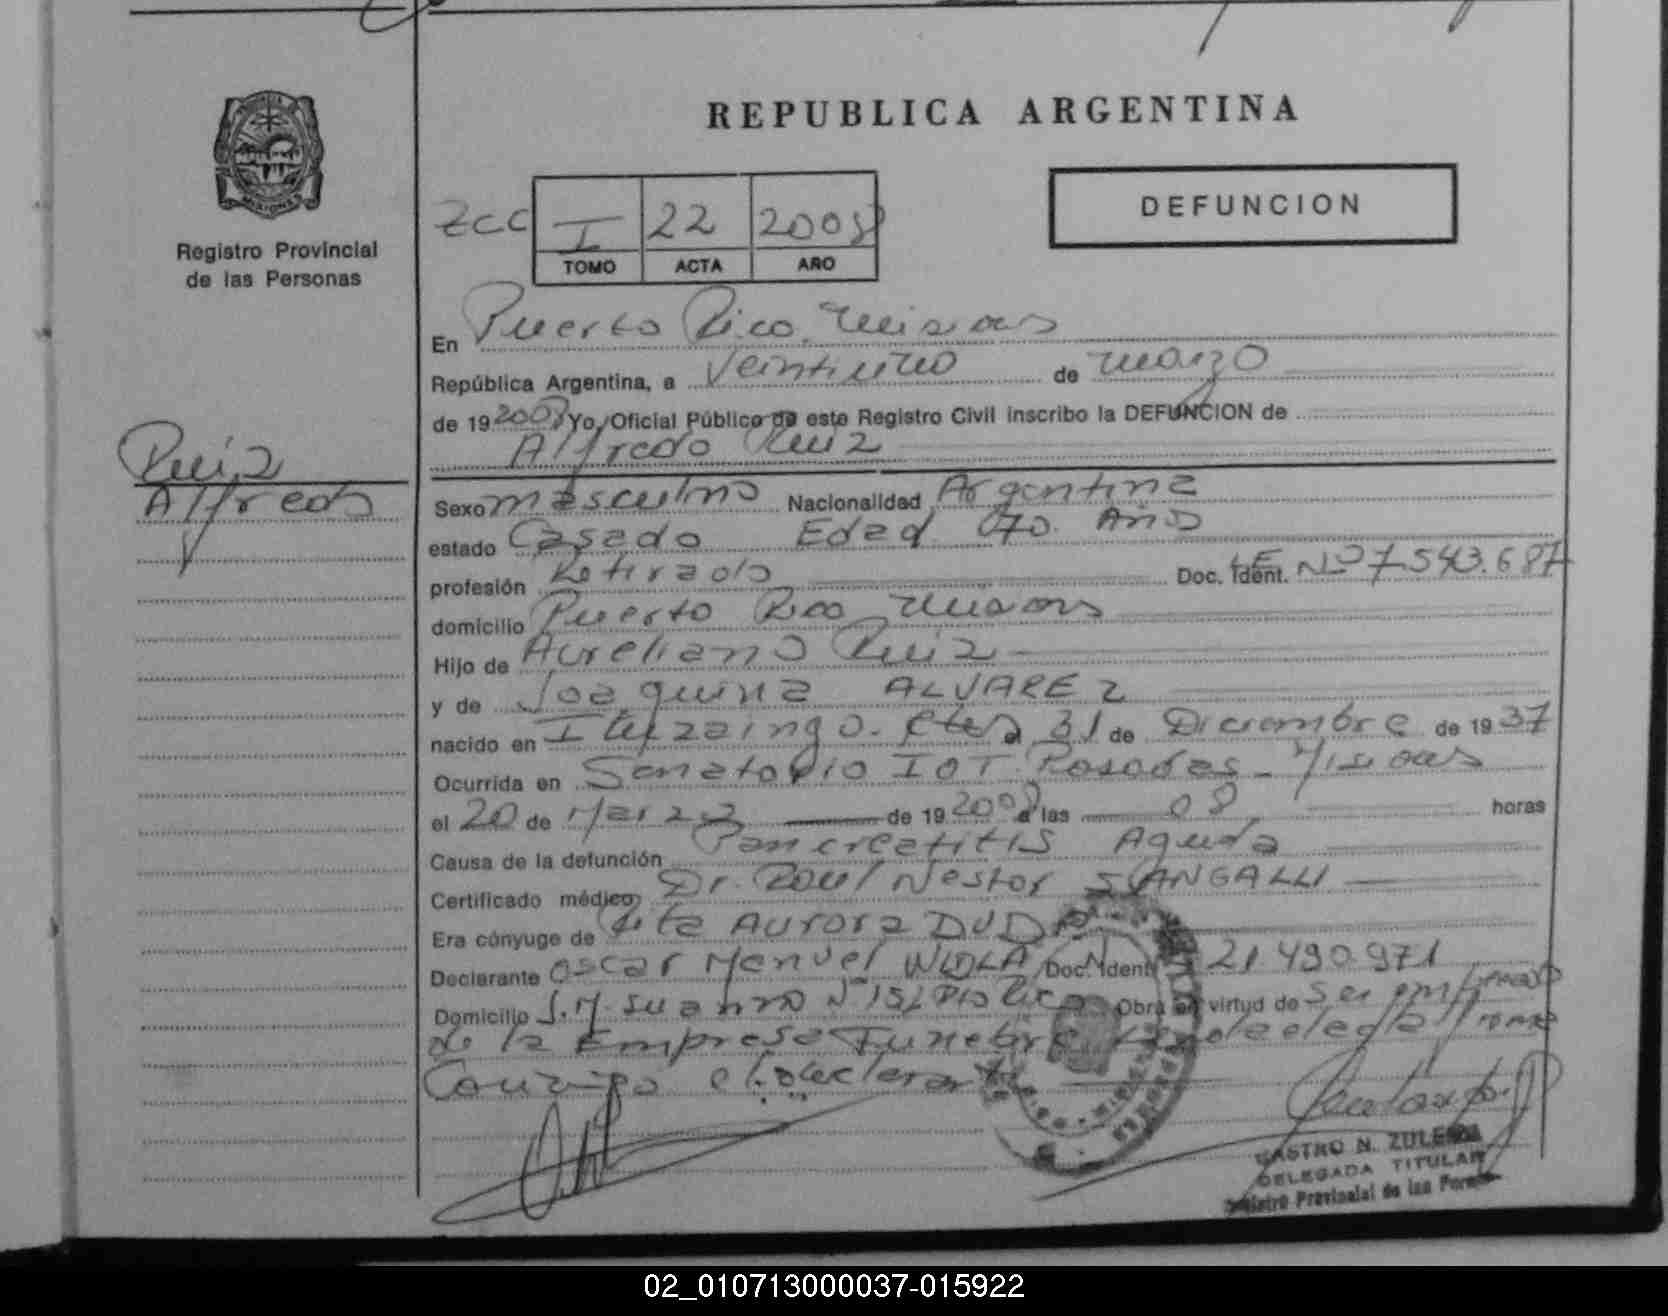 REPUBLICA ARGENTINA
MISIONES
Registro Provincial
de las Personas
ZCC I 22 2008
TOMO ACTA AÑO
DEFUNCION
En Puerto Rico, Misiones
República Argentina, a Veintiuno de marzo
de 19 2008 Yo, Oficial Público de este Registro Civil inscribo la DEFUNCION de
Alfredo Ruiz
Ruiz
Alfredo
Sexo masculino Nacionalidad Argentina
estado Casado Edad 70 Años
profesión Retirado Doc. Ident. LE Nº 7.543.687
domicilio Puerto Rico Misiones
Hijo de Aureliano Ruiz
y de Joaquina ALVAREZ
nacido en Ituzaingo. Ctes el 31 de Diciembre de 19 37
Ocurrida en Sanatorio IOT Posadas - Misiones
el 20 de Marzo de 19 2008 a las 08 horas
Causa de la defunción Pancreatitis Aguda
Certificado médico Dr. Raul Nestor SANGALLI
Era cónyuge de Rita Aurora DUDA
Declarante Oscar Manuel Doc. Ident. 21.490.971
Domicilio Nº 151 Pto Rico Obra en virtud de ser empleado
de la Empresa Funebre
Conmigo el declarante
CASTRO N. ZULEMA
DELEGADA TITULAR
Registro Provincial de las Personas
02_010713000037-015922